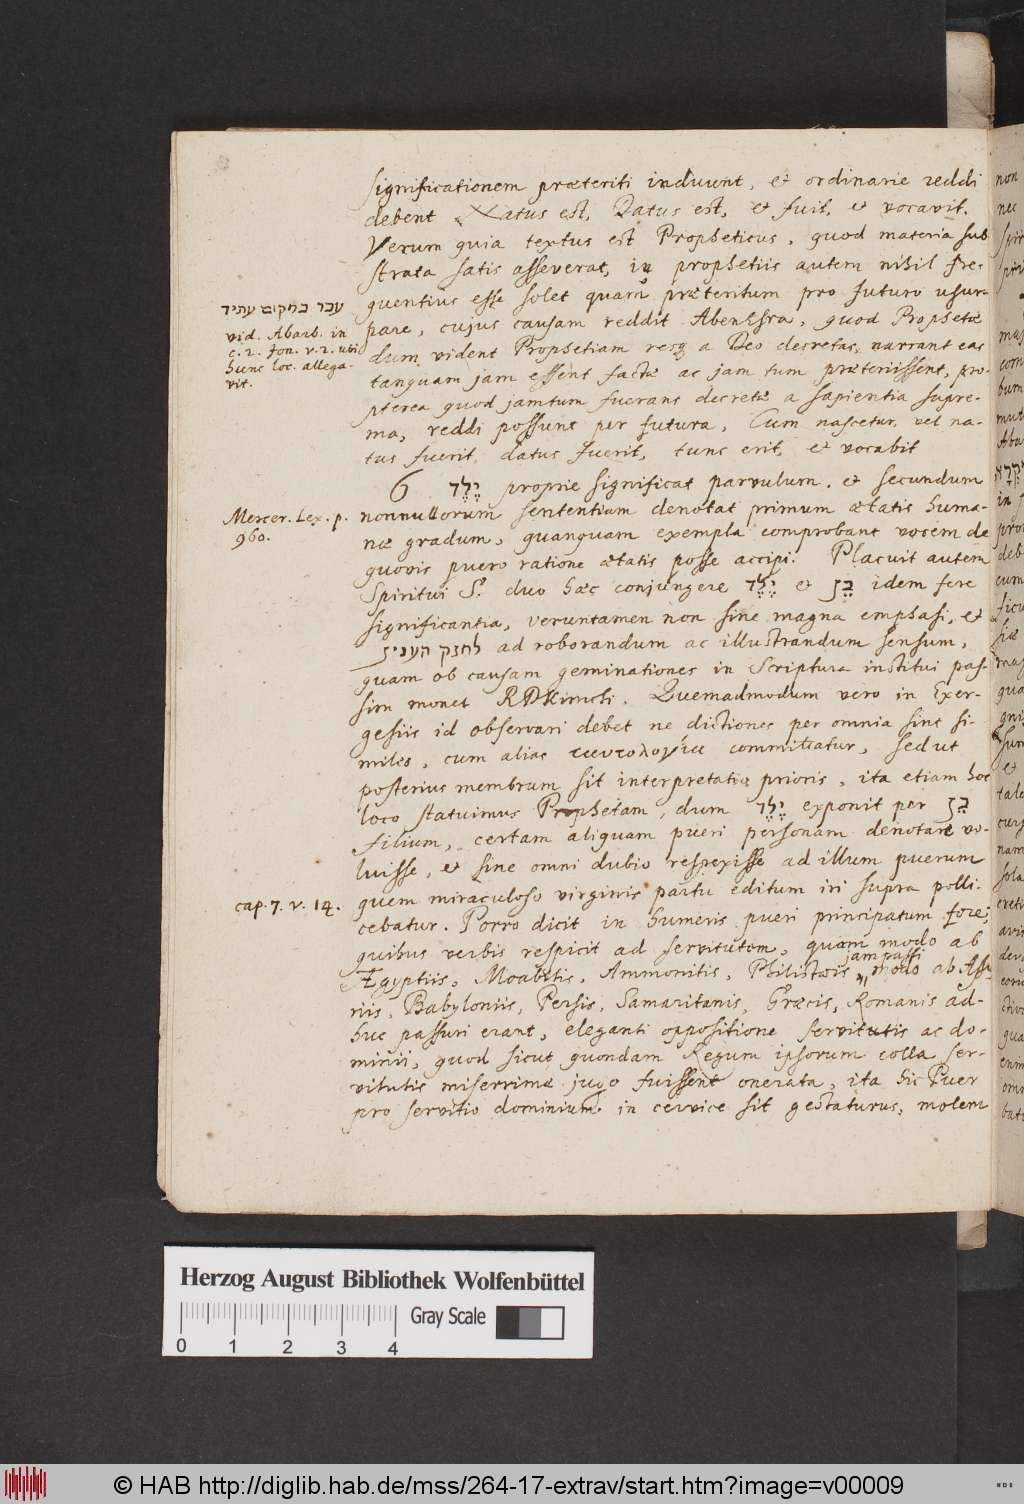 significationem præteriti induunt, et ordinarie reddi
debent Natus est, Datus est, et fuit, et vocavit.
Verum quia textus est Propheticus, quod materia sub
strata satis asseverat, in prophetiis autem nihil fre-
quentius esse solet quam præteritum pro futuro usur-
עבר במקום עתיד
vid. Abarb. in
c. 2. Jon. v. 2. ubi
hunc loc. allega-
vit.
pare, cujus causam reddit AbenEsra, quod Prophetæ
dum vident Prophetiam resq a Deo decretas, narrant eas
tanquam jam essent factæ ac jam tum præteriissent, pro-
pterea quod jamtum fuerant decretæ a sapientia supre-
ma, reddi possunt per futura, Cum nascetur vel na-
tus fuerit, datus fuerit, tunc erit, et vocabit
6 יֶלֶד proprie significat parvulum, et secundum
Mercer. Lex. p.
960.
nonnullorum sententiam denotat primum ætatis huma-
næ gradum, quanquam exempla comprobant vocem de
quovis puero ratione ætatis posse accipi. Placuit autem
Spiritui S. duo hæc conjungere יֶלֶד et בֵּן idem fere
significantia, veruntamen non sine magna emphasi, et
לחזק הענין ad roborandum ac illustrandum sensum,
quam ob causam geminationes in Scriptura institui pas-
sim monet RDKimchi. Quemadmodum vero in Exer-
gesiis id observari debet ne dictiones per omnia sint si-
miles, cum alias ταυτολογία committatur, sed ut
posterius membrum sit interpretatio prioris, ita etiam hoc
loco statuimus Prophetam, dum יֶלֶד exponit per בֵּן
filium, certam aliquam pueri personam denotare vo-
luisse, et sine omni dubio respexisse ad illum puerum
cap. 7. v. 14.
quem miraculoso virginis partu editum iri supra polli-
cebatur. Porro dicit in humeris pueri principatum fore;
quibus verbis respicit ad servitutem, quam modo ab
Ægyptiis, Moabitis, Ammonitis, Philistæis jam passi modo ab Assy
riis, Babyloniis, Persis, Samaritanis, Græcis, Romanis ad-
huc passuri erant, eleganti oppositione servitutis ac do-
minii, quod sicut quondam Regum ipsorum colla ser-
vitutis miserrimæ jugo fuissent onerata, ita hic Puer
pro servitio dominium in cervice sit gestaturus, molem
Herzog August Bibliothek Wolfenbüttel
Gray Scale
0 1 2 3 4
© HAB http://diglib.hab.de/mss/264-17-extrav/start.htm?image=v00009